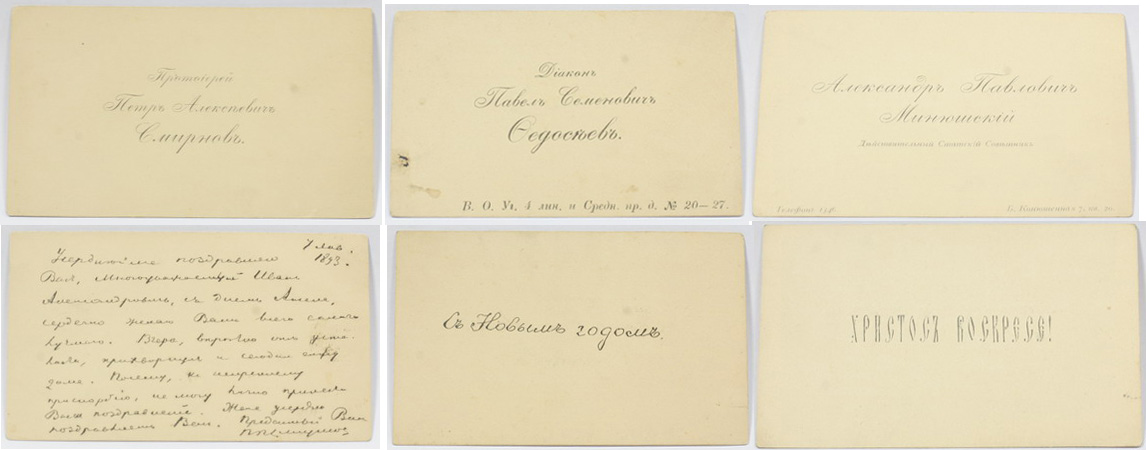 Протоіерей
Петръ Алексѣевичъ
Смирновъ.
Діаконъ
Павелъ Семеновичъ
Ѳедосѣевъ.
В. О. Уг. 4 лин. и Средн. пр. д. № 20—27.
Александръ Павловичъ
Минюшскій
Дѣйствительный Статскій Совѣтникъ
Б. Конюшенная 7, кв.
7 Янв.
1893.
Усерднѣйше поздравляю
Васъ, Многоуважаемый Иванъ
Александровичъ, съ Днемъ Ангела,
сердечно желаю Вамъ всего
лучшаго. Вчера,
и сегодня
дома. Почему, къ
не могу лично принести
Вамъ поздравленіе. Жена усердно
поздравляетъ Васъ. Преданный Вамъ
Съ Новымъ годомъ.
ХРИСТОСЪ ВОСКРЕСЕ!